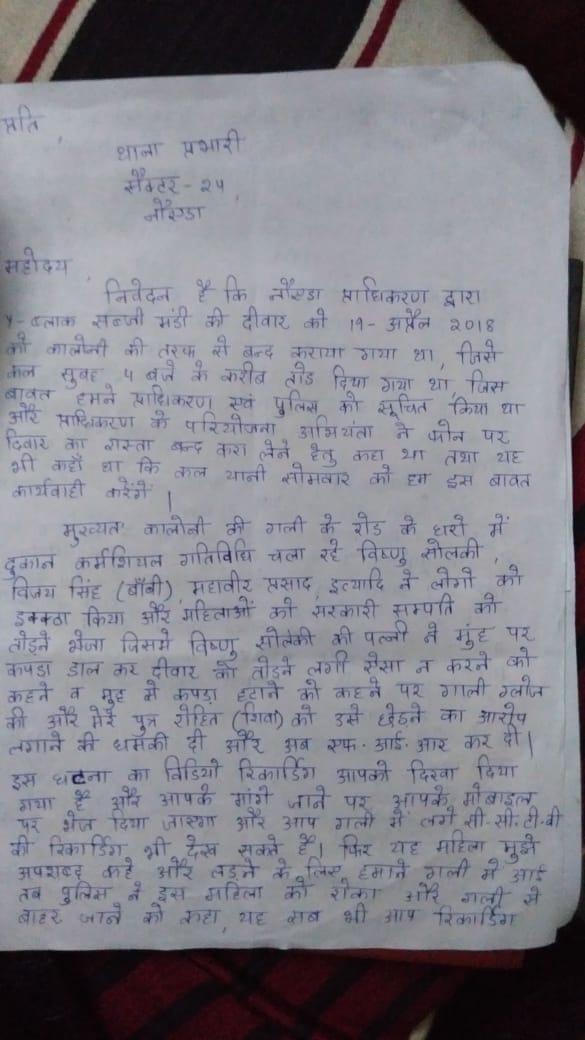 प्रति,
थाना प्रभारी
सैक्टर - 24
नौएडा
महोदय,
निवेदन है कि नौएडा प्राधिकरण द्वारा
Y - ब्लाक सब्जी मंडी की दीवार को 19 - अप्रैल 2018
को कालोनी की तरफ से बन्द कराया गया था, जिसे
कल सुबह 4 बजे के करीब तोड दिया गया था, जिस
बावत हमने प्राधिकरण एवं पुलिस को सूचित किया था
और प्राधिकरण के परियोजना अभियंता ने फोन पर
दिवार का रास्ता बन्द करा लेने हेतु कहा था तथा यह
भी कहाँ था कि कल यानी सोमवार को हम इस बावत
कार्यवाही करेंगे।
मुख्यतः कालोनी की गली के रोड के घरो में
दुकान कर्मशियल गतिविधि चला रहे विष्णु सोलंकी,
विजय सिंह (बॉबी), महावीर प्रसाद, इत्यादि ने लोगो को
इक्कठा किया और महिलाओं को सरकारी सम्पति को
तोड़ने भेजा जिसमे विष्णु सोलंकी की पत्नी ने मुंह पर
कपड़ा डाल कर दीवार को तोड़ने लगी ऐसा न करने को
कहने व मुह से कपड़ा हटाने को कहने पर गाली ग्लोज
की और मेरे पुत्र रोहित (शिवा) को उसे छेड़ने का आरोप
लगाने की धमकी दी और अब एफ. आई. आर कर दी।
इस घटना का विडियो रिकार्डिंग आपको दिखा दिया
गया है और आपके मांगे जाने पर आपके मोबाइल
पर भेज दिया जाएगा और आप गली में लगे सी. सी. टी. वी
की रिकार्डिंग भी देख सकते है। फिर यह महिला मुझे
अपशब्द कहे और लडने के लिए हमारे गली में आई
तब पुलिस ने इस महिला को रोका और गली से
बाहर जाने को कहा, यह सब भी आप रिकार्डिंग